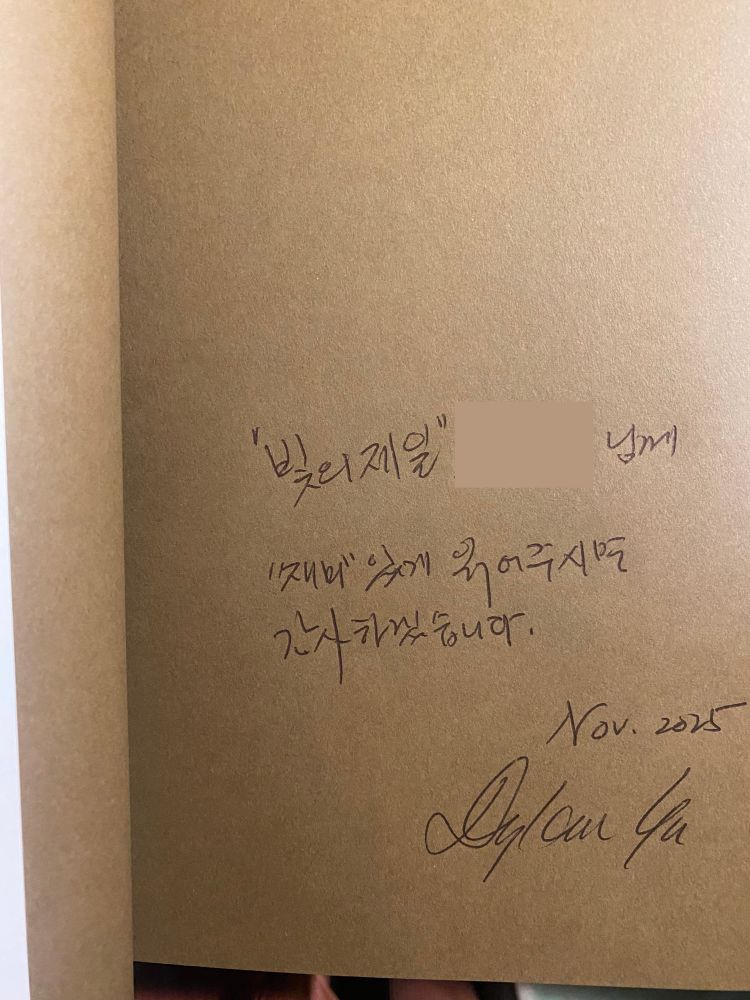 "빛의 제일" 님께
"재미" 있게 읽어주시면
감사하겠습니다.
Nov. 2025
Dylan Yu